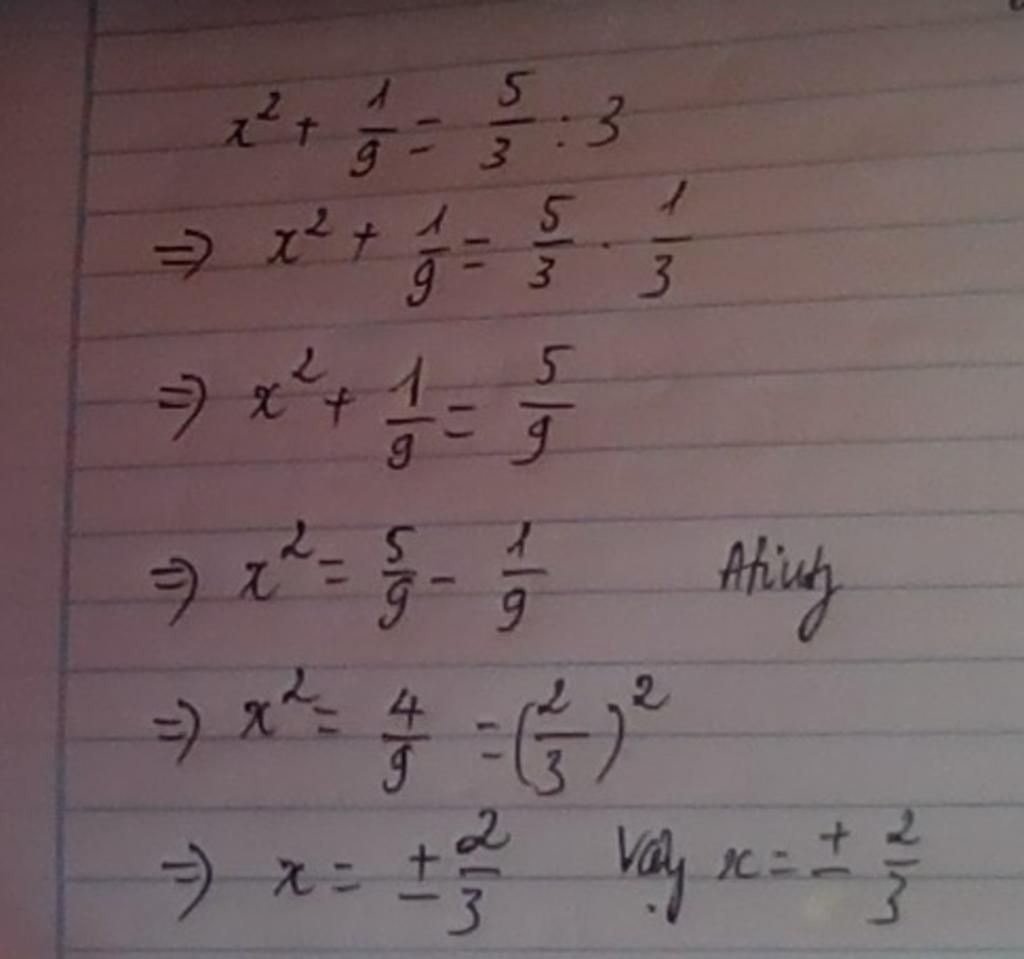 x² + 1/9 = 5/3 : 3
=> x² + 1/9 = 5/3 . 1/3
=> x² + 1/9 = 5/9
=> x² = 5/9 - 1/9
=> x² = 4/9 = (2/3)²
=> x = ± 2/3 Vậy x = ± 2/3